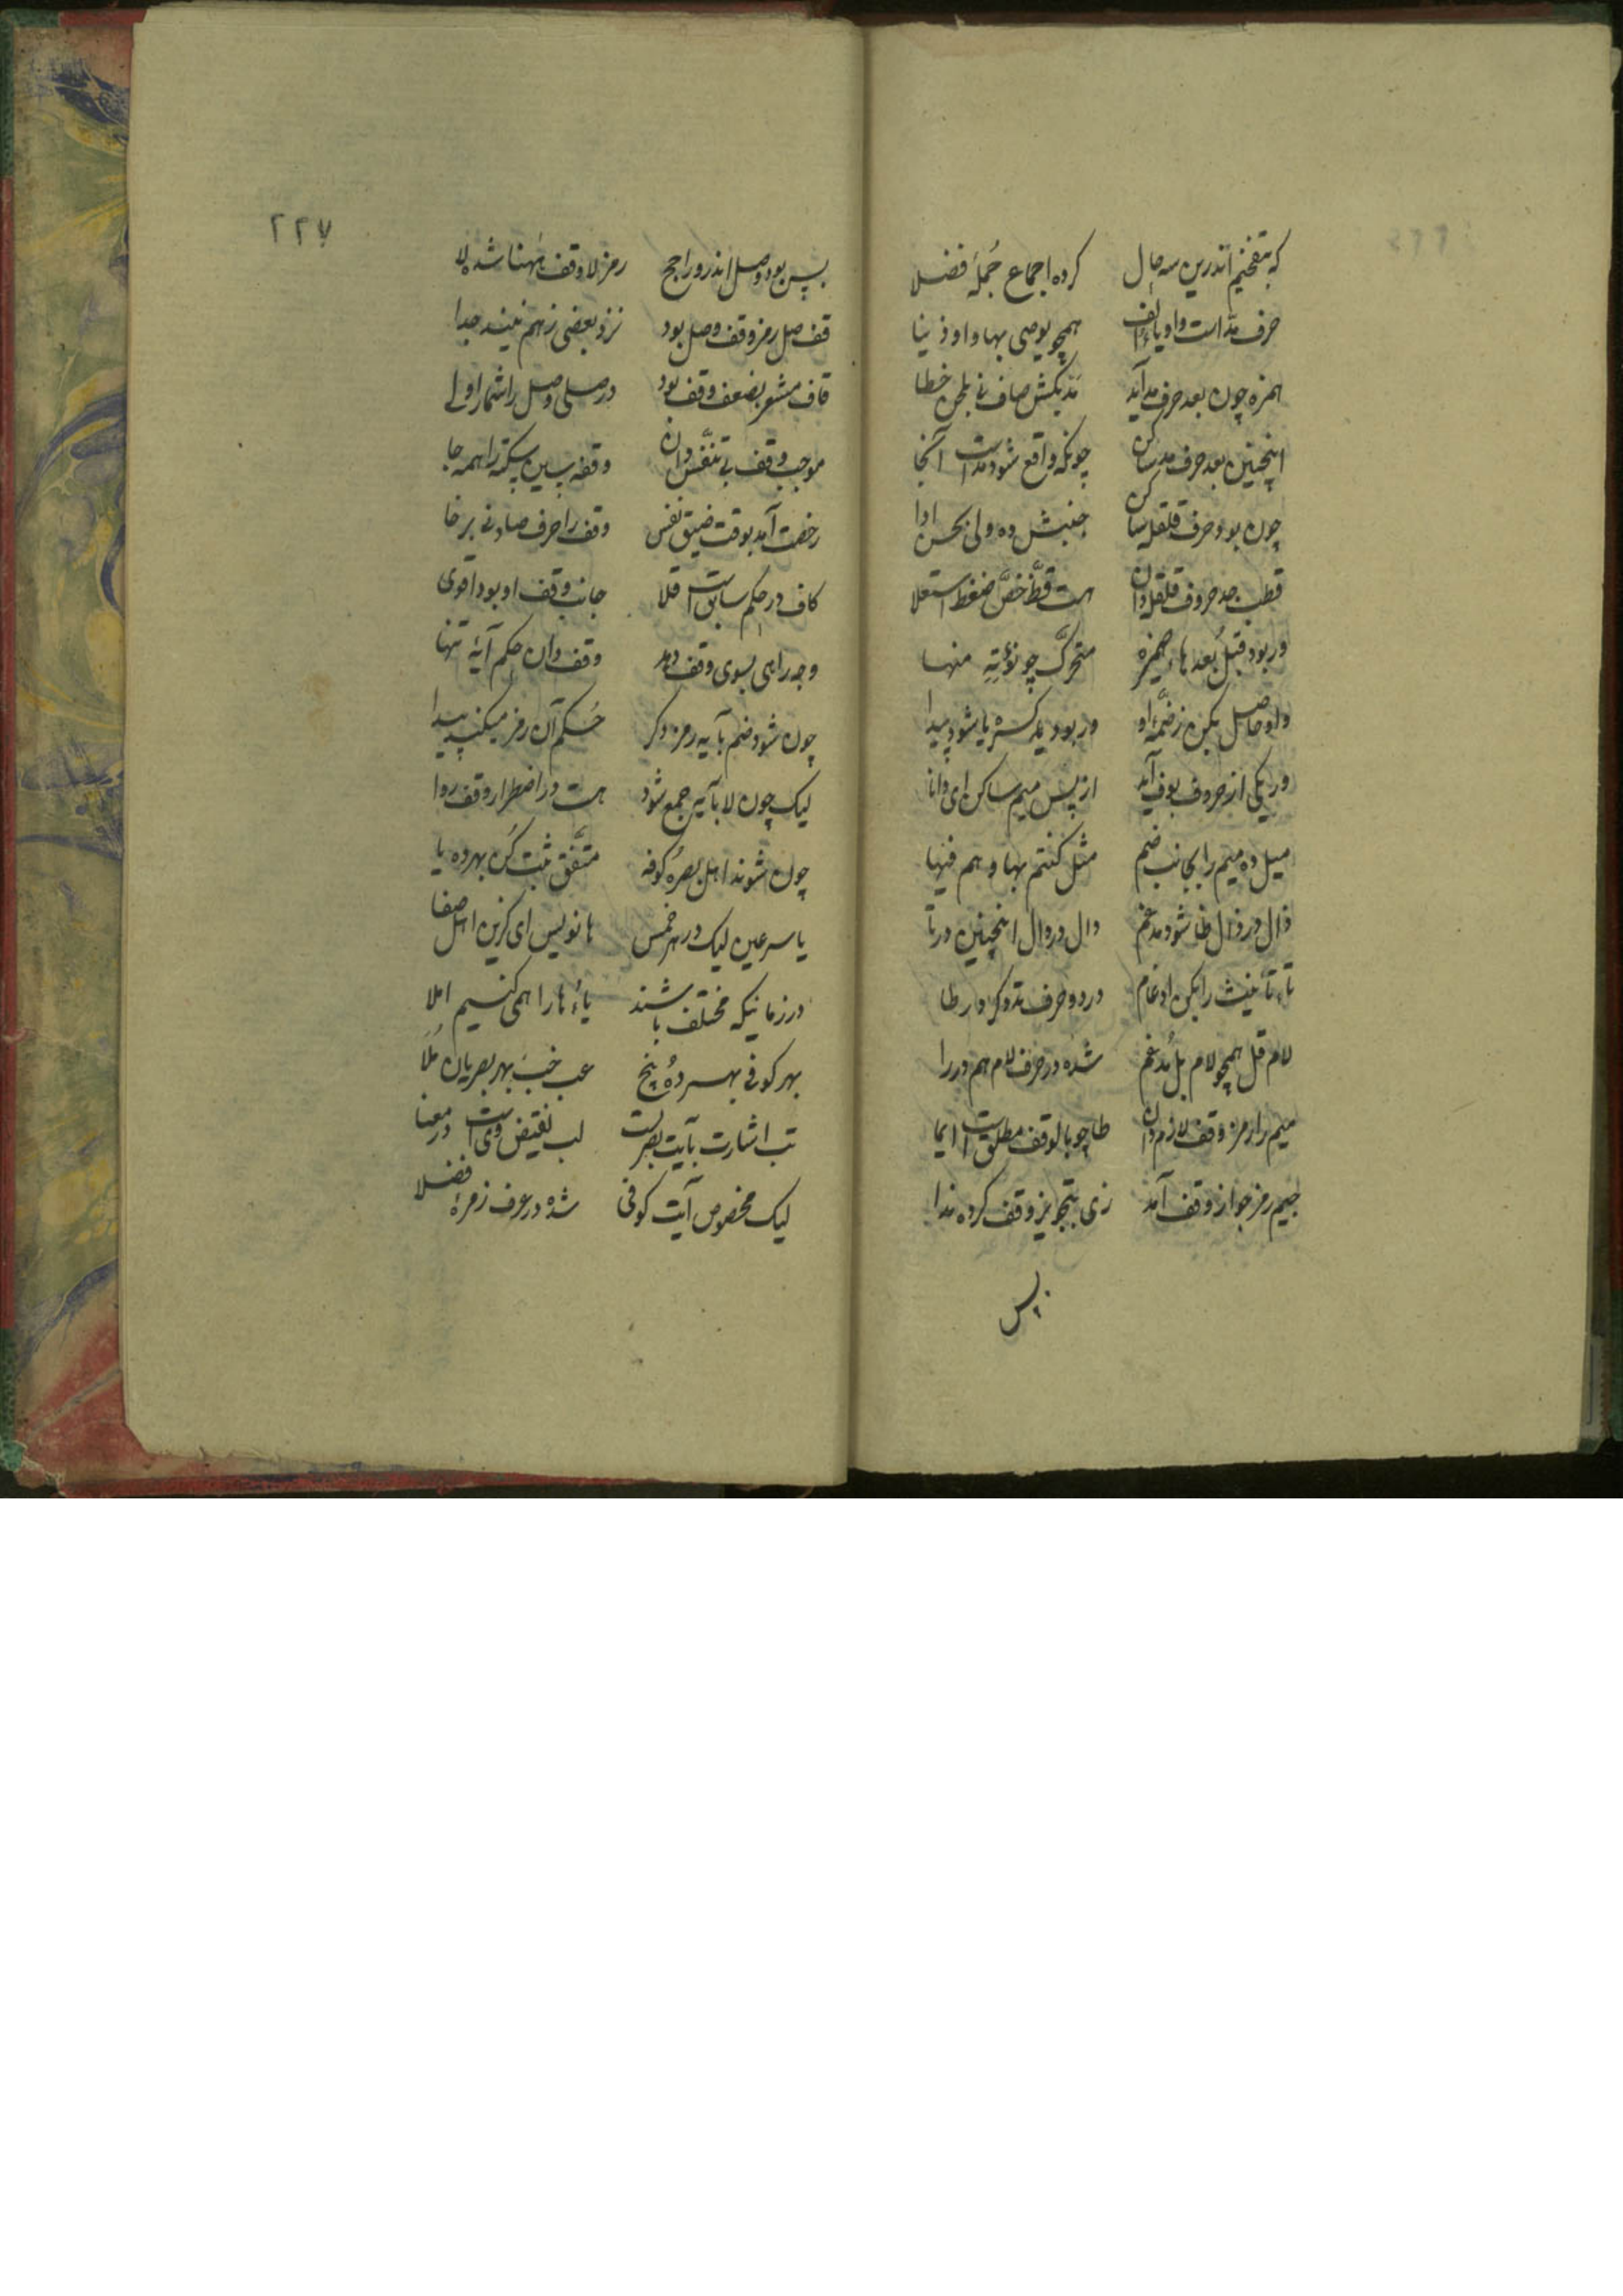 که بتفخیم اندرین سه حال کرده اجماع جُملهٔ فضلا
حرف مدّ است واو یاء و الف همچو یوصی بها و اوذینا
همزه چون بعد حرف مد آید مد بکش صاف نی بلحن خطا
اینچنین بعد حرف مد ساکن چونکه واقع شود مد است آنجا
چون بود حرف قلقله ساکن جنبش ده ولی بحسن ادا
قطب جد حروف قلقله دان هست قظّ خصّ ضغط استعلا
ور بود قبل بُعد هاء ضمیر متحرک چو نؤتِهِ منها
واو حاصل بکن ز ضمّهٔ او ور بود کسره یا شود پیدا
ور یکی از حروف بوف آید از پس میم ساکن ای دانا
میل ده میم را بجانب ضم مثل کنتم بها و هم فیها
ذال در ذال ظا شود مدغم دال در دال اینچنین در تا
تاء تأنیث را بکن ادغام در دو حرف تد و کر در طا
لام قل همچو لام بل مُدغم شده در حرف لام هم در را
میم را رمز وقف لازم دان طا چو بالوقف مطلق است ایما
جیم رمز جواز وقف آمد زی بتجویز وقف کرده ندا
پس
٢٢٧
پس بود وصل اندرو راجح رمز لا وقف هٰهنا شده لا
قف صل رمز وقف وصل بود نزد بعضی ز هم نیند جدا
قاف مشعر بضعف وقف بود در صلی وصل را شمار اولی
موجب وقف بی تنفّس دان وقفه پس سین سکته را همه جا
رخصت آمد بوقت ضیق نفس وقف را حرف صاد نی برخا
کاف در حکم سابق است اقلا جانب وقف او بود اقوی
وجه راهی بسوی وقف دهد وقف دان حکم آیهٔ تنها
چون شود ضم بآیه رمز دگر حُکم آن رمز میکنند پیدا
لیک چون لا بآیه جمع شود هست در اضطرار وقف روا
چون شوند اهل بصره کوفه متّفق ثبت کن بهر ده یا
یا سر عین لیک در هر خمس ها نویس ای گزین اهل صفا
در زمانیکه مختلف باشند یاء ها را همی کنیم املا
بهر کوفی بهر ده و پنج عب خب بهر بصریان مَلَا
تب اشارت بآیت بصریست لب نقیض وی است در معنا
لیک مخصوص آیت کوفی شده در عرف زمرهٔ فضلا